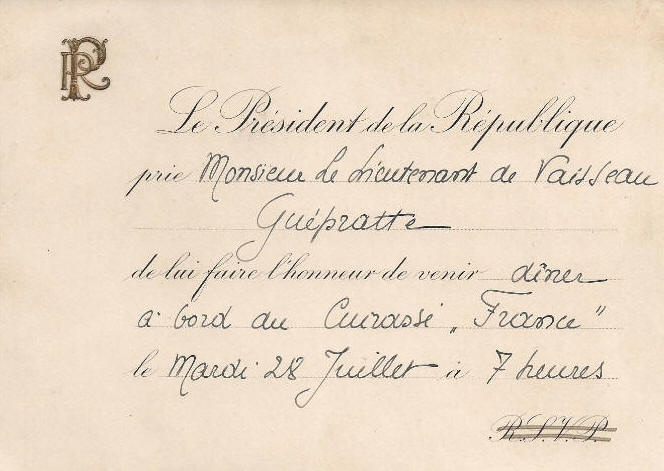 RP
Le Président de la République
prie Monsieur le Lieutenant de Vaisseau
Guépratte
de lui faire l'honneur de venir dîner
à bord du Cuirassé „France"
le Mardi 28 Juillet à 7 heures
R.S.V.P.